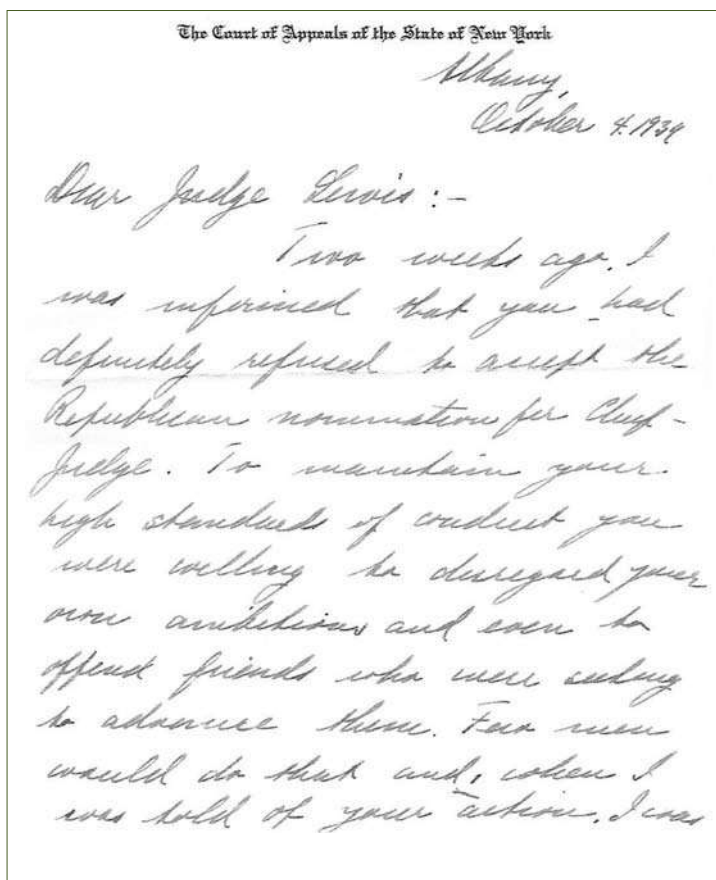 The Court of Appeals of the State of New York
Albany,
October 4. 1939
Dear Judge Lewis :-
Two weeks ago, I
was informed that you had
definitely refused to accept the
Republican nomination for Chief-
Judge. To maintain your
high standards of conduct you
were willing to disregard your
own ambitions and even to
offend friends who were seeking
to advance them. Few men
would do that and, when I
was told of your action, I was